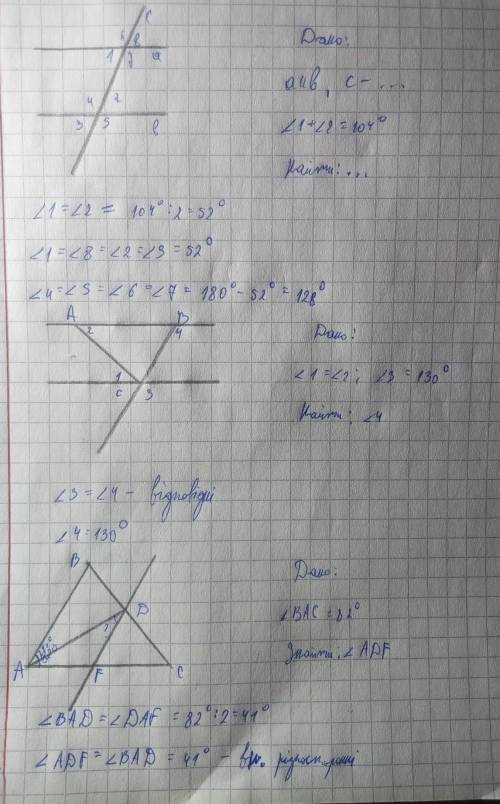 c
6 8
1 7 a
4 2
3 5 b
Дано:
a||b, c - ...
∠1+∠2=104°
Найти: ...
∠1=∠2 = 104°:2=52°
∠1=∠8=∠2=∠3=52°
∠4=∠5=∠6=∠7=180°-52°=128°
A B
2 4
1
c 3
Дано:
∠1=∠2; ∠3=130°
Найти: ∠4
∠3=∠4 - відповідні
∠4=130°
B
D
A F C
Дано:
∠BAC=82°
Знайти: ∠ADF
∠BAD=∠DAF=82°:2=41°
∠ADF=∠BAD=41° - вн. різност.